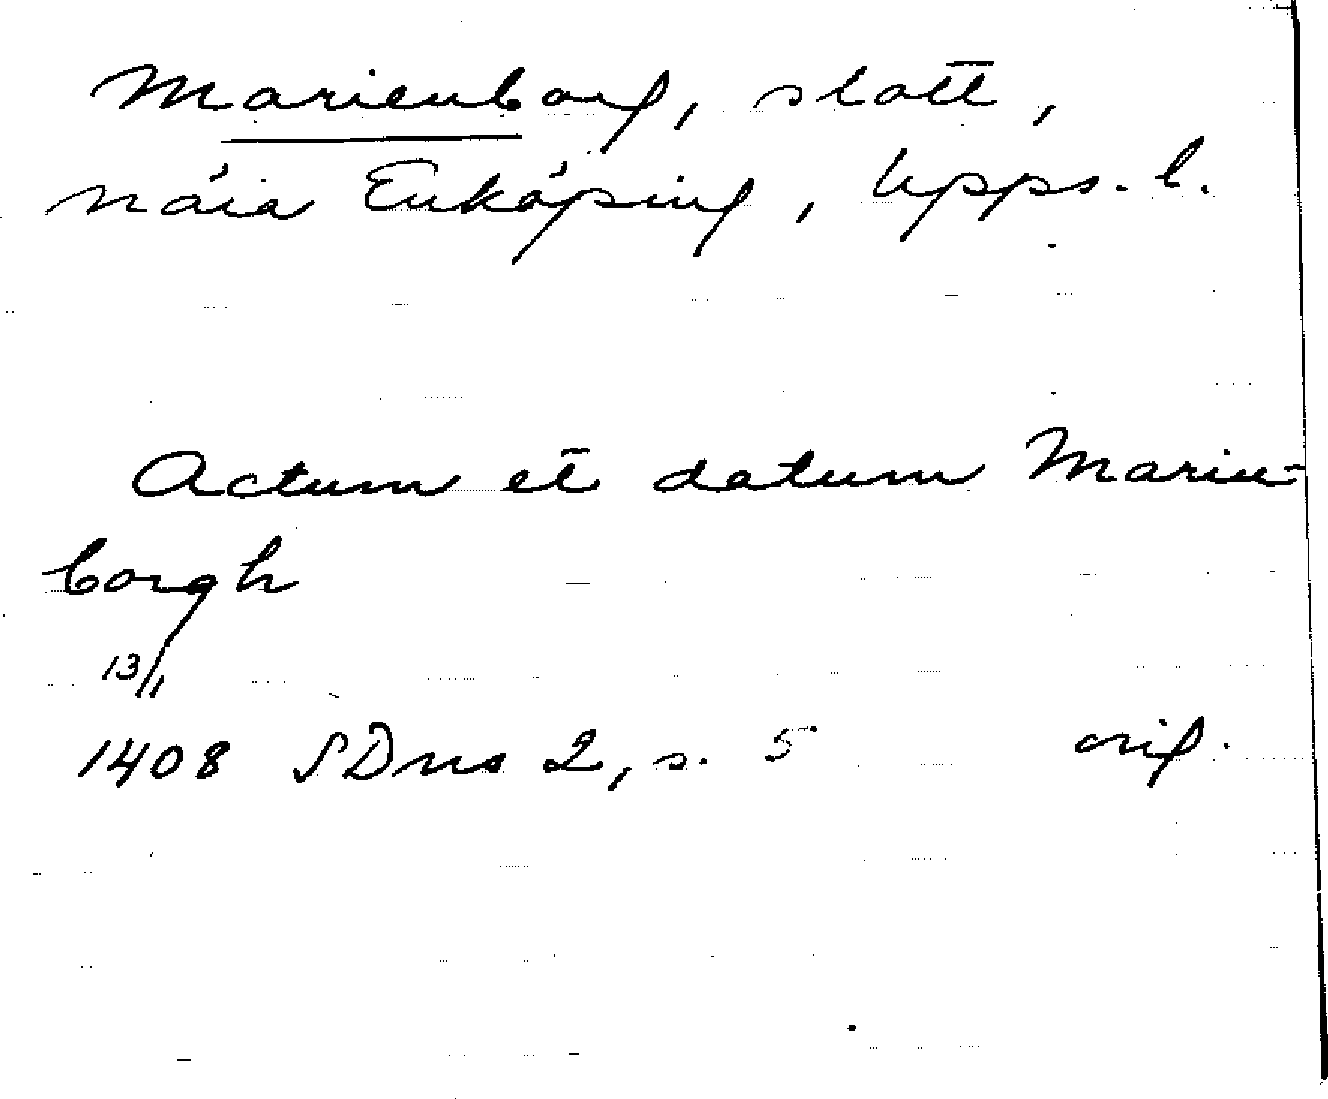 Marienborg, slott,
nära Enköping, Upps. l.
Actum et datum Marien-
borgh
13/11
1408 SDns 2, s. 5 orig.